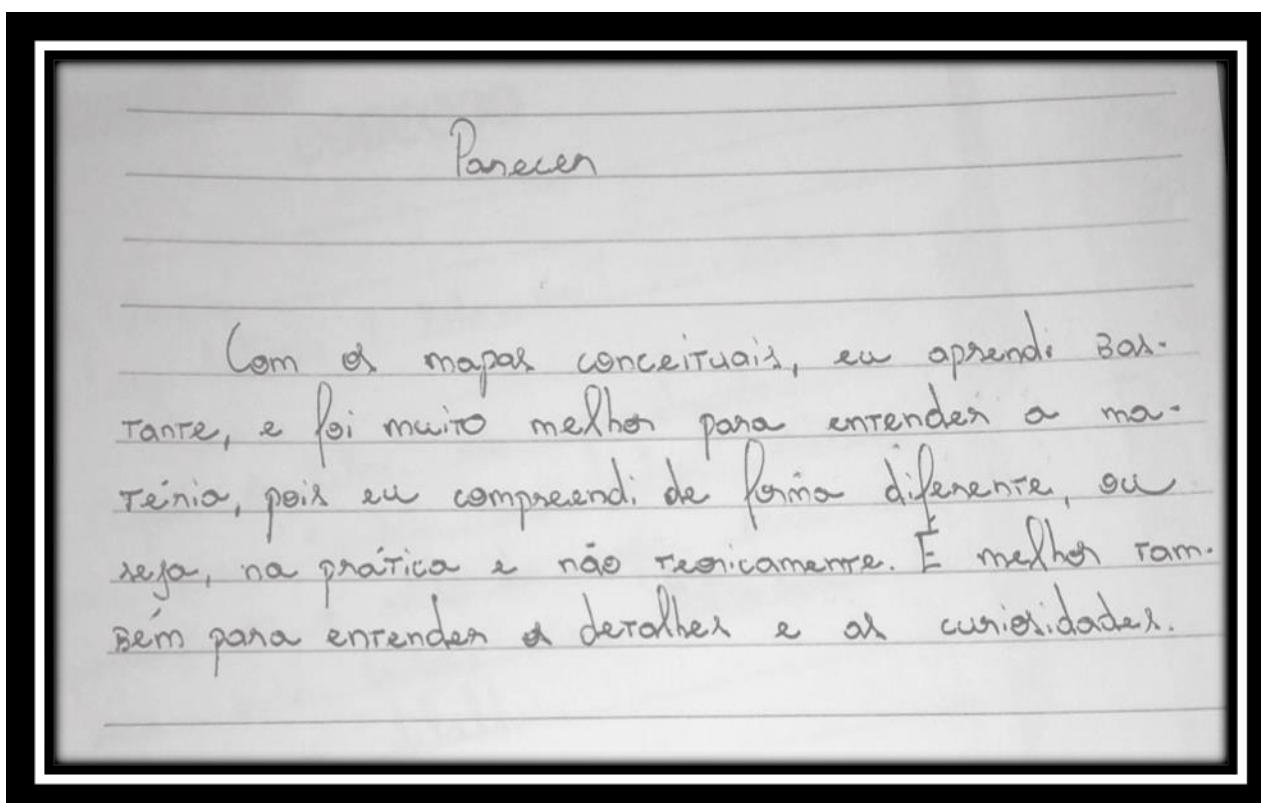 Parecer
Com os mapas conceituais, eu aprendi bas-
tante, e foi muito melhor para entender a ma-
téria, pois eu compreendi de forma diferente, ou
seja, na prática e não teoricamente. É melhor tam-
bém para entender os detalhes e as curiosidades.